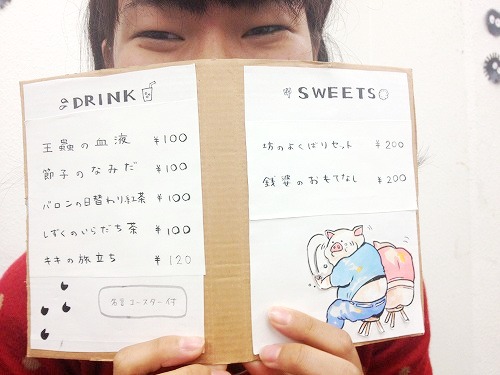 DRINK
王蟲の血液 ¥100
節子のなみだ ¥100
バロンの日替わり紅茶 ¥100
しずくのいらだち茶 ¥100
キキの旅立ち ¥120
名言コースター付
SWEETS
坊のよくばりセット ¥200
銭婆のおもてなし ¥200